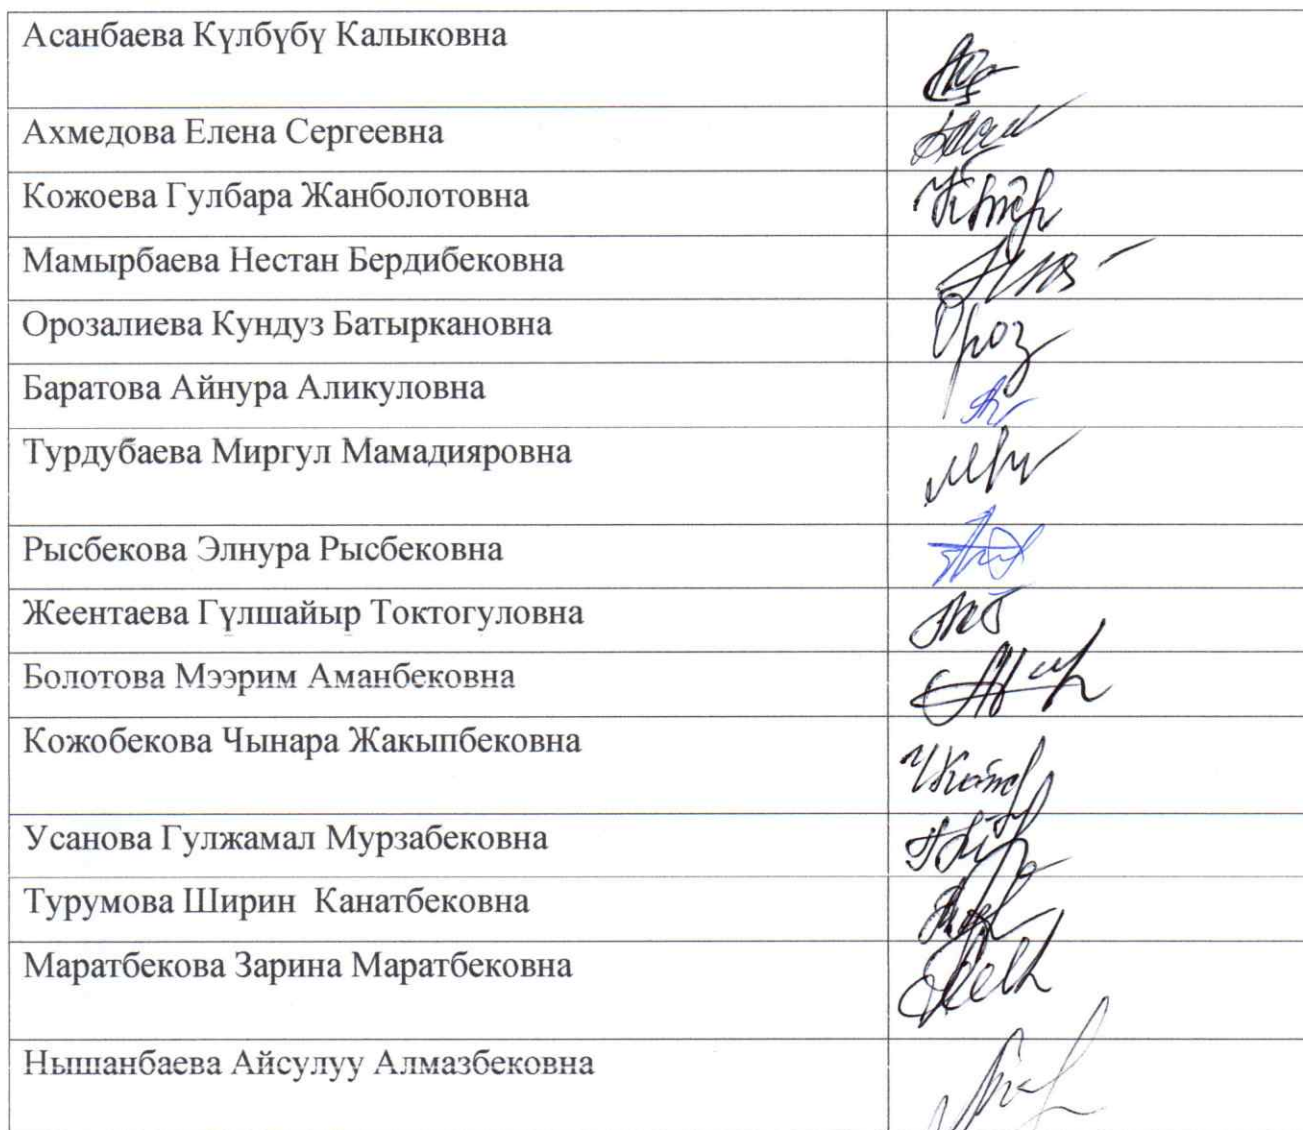 Асанбаева Күлбүбү Калыковна
Ахмедова Елена Сергеевна
Кожоева Гулбара Жанболотовна
Мамырбаева Нестан Бердибековна
Орозалиева Кундуз Батыркановна
Ороз
Баратова Айнура Аликуловна
Турдубаева Миргул Мамадияровна
Рысбекова Элнура Рысбековна
Жеентаева Гүлшайыр Токтогуловна
Болотова Мээрим Аманбековна
Кожобекова Чынара Жакыпбековна
Усанова Гулжамал Мурзабековна
Турумова Ширин Канатбековна
Маратбекова Зарина Маратбековна
Нышанбаева Айсулуу Алмазбековна